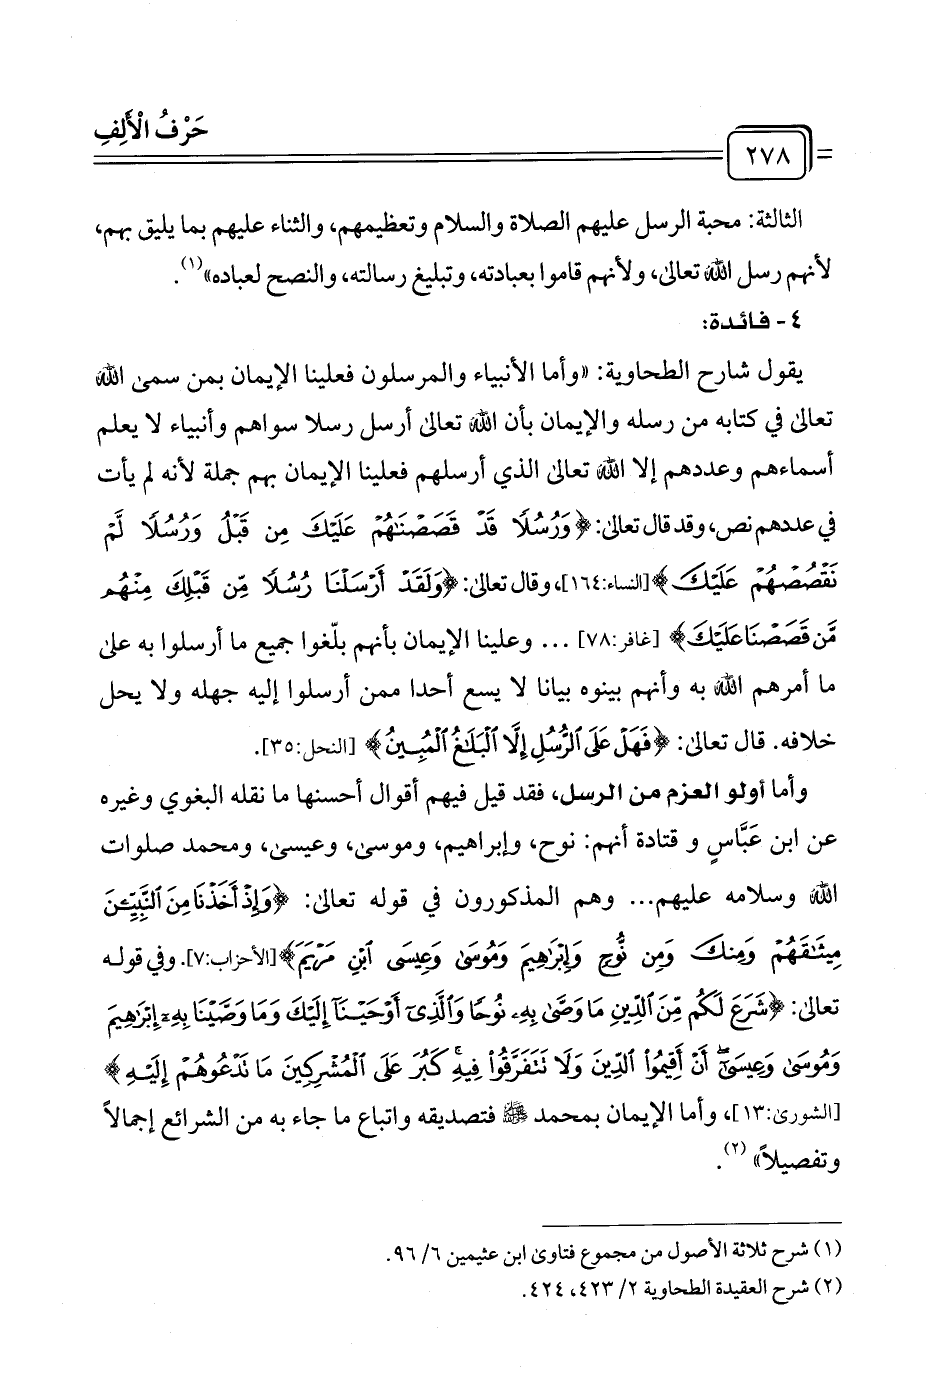 حَرْفُ الْأَلِفِ
٢٧٨
الثالثة: محبة الرسل عليهم الصلاة والسلام وتعظيمهم، والثناء عليهم بما يليق بهم،
لأنهم رسل الله تعالىٰ، ولأنهم قاموا بعبادته، وتبليغ رسالته، والنصح لعباده»(١).
٤- فائدة:
يقول شارح الطحاوية: «وأما الأنبياء والمرسلون فعلينا الإيمان بمن سمىٰ الله
تعالىٰ في كتابه من رسله والإيمان بأن الله تعالىٰ أرسل رسلا سواهم وأنبياء لا يعلم
أسماءهم وعددهم إلا الله تعالىٰ الذي أرسلهم فعلينا الإيمان بهم جملة لأنه لم يأت
في عددهم نص، وقد قال تعالىٰ: ﴿وَرُسُلًا قَدْ قَصَصْنَٰهُمْ عَلَيْكَ مِن قَبْلُ وَرُسُلًا لَّمْ
نَقْصُصْهُمْ عَلَيْكَ﴾ [النساء:١٦٤]، وقال تعالىٰ: ﴿وَلَقَدْ أَرْسَلْنَا رُسُلًا مِّن قَبْلِكَ مِنْهُم
مَّن قَصَصْنَا عَلَيْكَ﴾ [غافر:٧٨] ... وعلينا الإيمان بأنهم بلّغوا جميع ما أرسلوا به علىٰ
ما أمرهم الله به وأنهم بينوه بيانا لا يسع أحدا ممن أرسلوا إليه جهله ولا يحل
خلافه. قال تعالىٰ: ﴿فَهَلْ عَلَى ٱلرُّسُلِ إِلَّا ٱلْبَلَٰغُ ٱلْمُبِينُ﴾ [النحل:٣٥].
وأما أولو العزم من الرسل، فقد قيل فيهم أقوال أحسنها ما نقله البغوي وغيره
عن ابن عَبَّاسٍ و قتادة أنهم: نوح، وإبراهيم، وموسىٰ، وعيسىٰ، ومحمد صلوات
الله وسلامه عليهم... وهم المذكورون في قوله تعالىٰ: ﴿وَإِذْ أَخَذْنَا مِنَ ٱلنَّبِيِّـۧنَ
مِيثَٰقَهُمْ وَمِنكَ وَمِن نُّوحٍ وَإِبْرَٰهِيمَ وَمُوسَىٰ وَعِيسَى ٱبْنِ مَرْيَمَ﴾ [الأحزاب:٧]. وفي قوله
تعالىٰ: ﴿شَرَعَ لَكُم مِّنَ ٱلدِّينِ مَا وَصَّىٰ بِهِۦ نُوحًا وَٱلَّذِىٓ أَوْحَيْنَآ إِلَيْكَ وَمَا وَصَّيْنَا بِهِۦٓ إِبْرَٰهِيمَ
وَمُوسَىٰ وَعِيسَىٰٓ ۖ أَنْ أَقِيمُوا۟ ٱلدِّينَ وَلَا تَتَفَرَّقُوا۟ فِيهِ ۚ كَبُرَ عَلَى ٱلْمُشْرِكِينَ مَا تَدْعُوهُمْ إِلَيْهِ﴾
[الشورىٰ:١٣]، وأما الإيمان بمحمد ﷺ فتصديقه واتباع ما جاء به من الشرائع إجمالاً
وتفصيلاً» (٢).
(١) شرح ثلاثة الأصول من مجموع فتاوىٰ ابن عثيمين ٦/ ٩٦.
(٢) شرح العقيدة الطحاوية ٢/ ٤٢٣، ٤٢٤.